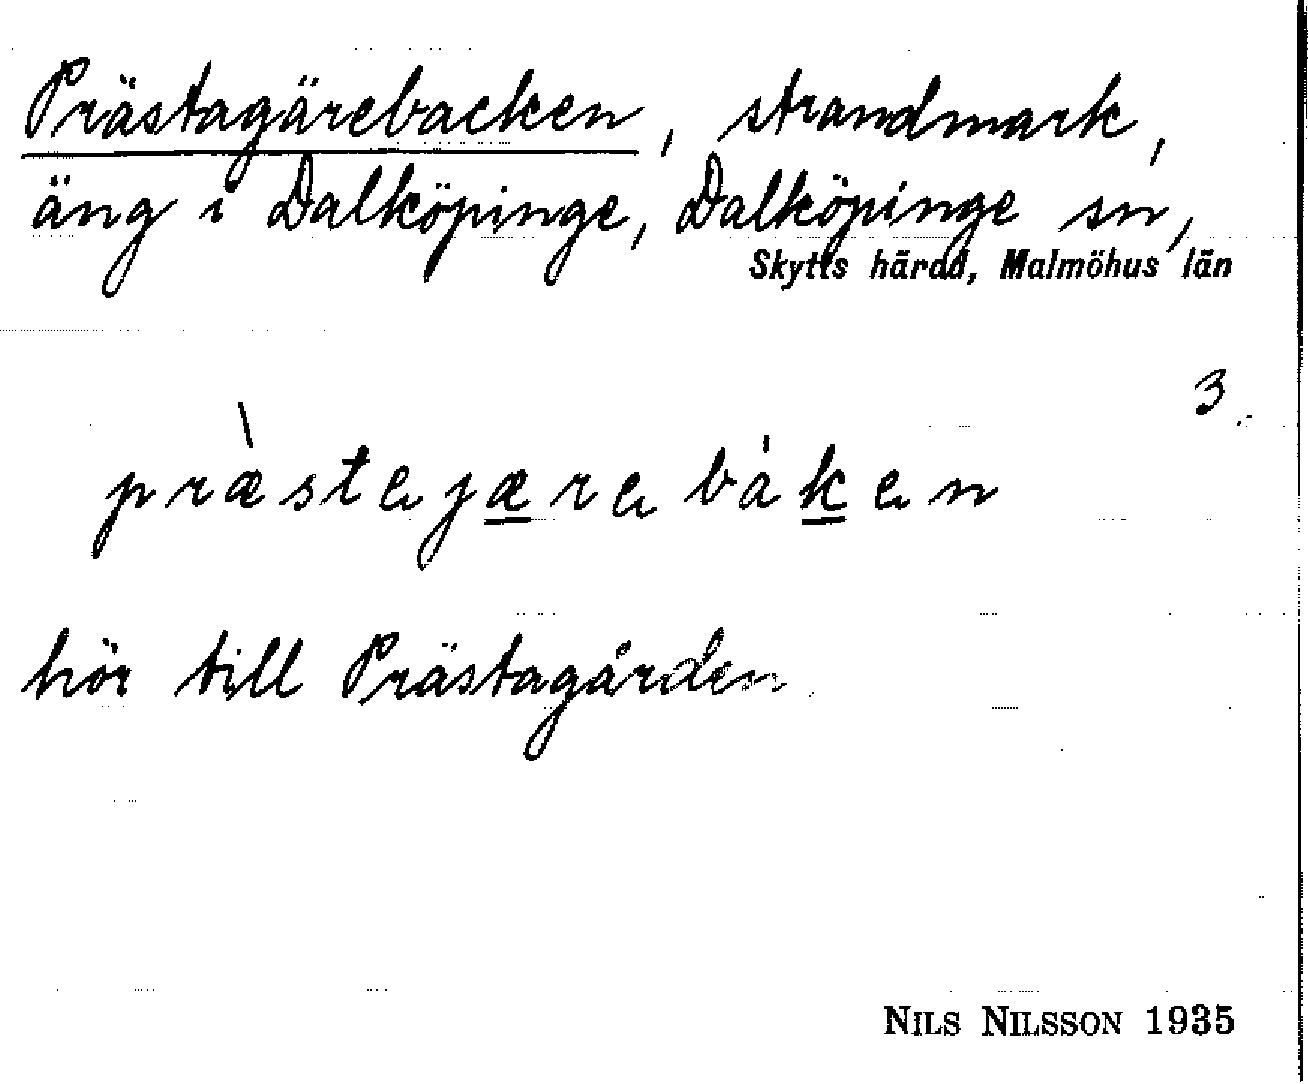 Prästagärebacken, strandmark,
äng i Dalköpinge, Dalköpinge sn,
Skytts härad, Malmöhus län
3.
præ̀stejæ̲re bák̲en
hör till Prästagården
NILS NILSSON 1935